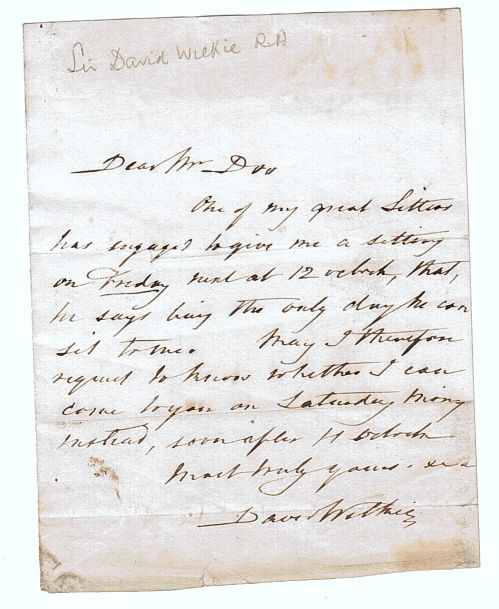 Sir David Wilkie RA
Dear Mr Doo
One of my great Sitters
has engaged to give me a sitting
on Friday next at 12 oclock, that,
he says being the only day he can
sit to me. May I therefore
request to know whether I can
come to you on Saturday morng
instead, soon after 11 oclock
Most truly yours. &c a
David Wilkie